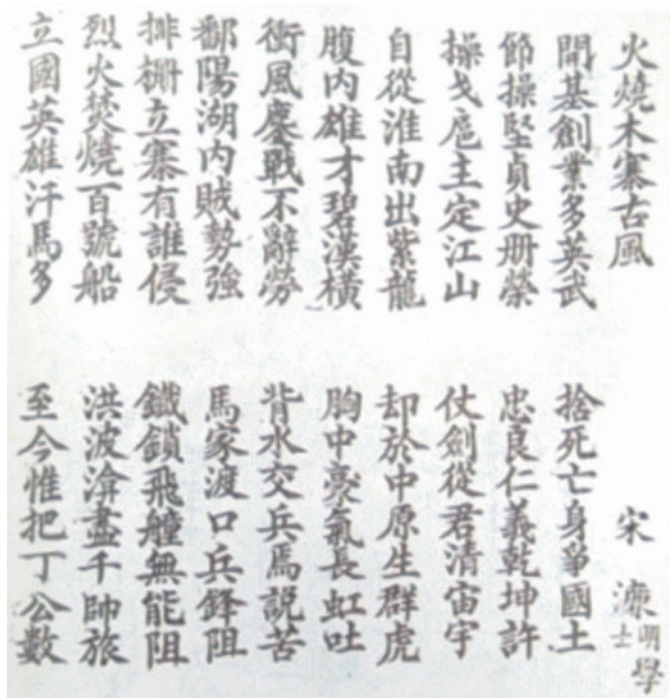 火燒木寨古風 宋濂 明學士
開基創業多英武 捨死亡身爭國土
節操堅貞史册榮 忠良仁義乾坤許
操戈扈主定江山 仗劍從君清宙宇
自從淮南出紫龍 却於中原生群虎
腹内雄才碧漢橫 胸中豪氣長虹吐
衝風鏖戰不辭勞 背水交兵焉説苦
鄱陽湖内賊勢強 馬家渡口兵鋒阻
排栅立寨有誰侵 鐵鎖飛艟無能阻
烈火焚燒百號船 洪波渰盡千帥旅
立國英雄汗馬多 至今惟把丁公數